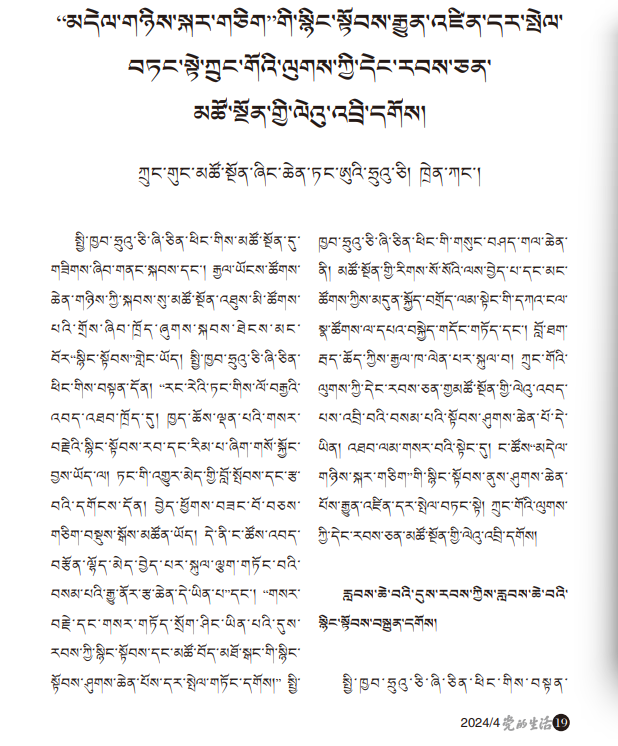 “མདེལ་གཉིས་སྐར་གཅིག”གི་སྙིང་སྟོབས་རྒྱུན་འཛིན་དར་སྤེལ་
བཏང་སྟེ་ཀྲུང་གོའི་ལུགས་ཀྱི་དེང་རབས་ཅན་
མཚོ་སྔོན་གྱི་ལེའུ་འབྲི་དགོས།
ཀྲུང་གུང་མཚོ་སྔོན་ཞིང་ཆེན་ཏང་ཨུའི་ཧྲུའུ་ཅི། ཁྲེན་ཀང་།
སྤྱི་ཁྱབ་ཧྲུའུ་ཅི་ཞི་ཅིན་ཕིང་གིས་མཚོ་སྔོན་དུ་
གཟིགས་ཞིབ་གནང་སྐབས་དང་། རྒྱལ་ཡོངས་ཚོགས་
ཆེན་གཉིས་ཀྱི་སྐབས་སུ་མཚོ་སྔོན་འཐུས་མི་ཚོགས་
པའི་གྲོས་ཞིབ་ཁྲོད་ཞུགས་སྐབས་ཐེངས་མང་
བོར་“སྙིང་སྟོབས”གླེང་ཡོད། སྤྱི་ཁྱབ་ཧྲུའུ་ཅི་ཞི་ཅིན་
ཕིང་གིས་བསྟན་དོན། “རང་རེའི་ཏང་གིས་ལོ་བརྒྱའི་
འབད་འཐབ་ཁྲོད་དུ། ཁྱད་ཆོས་ལྡན་པའི་གསར་
བརྗེའི་སྙིང་སྟོབས་རབ་དང་རིམ་པ་ཞིག་གསོ་སྐྱོང་
བྱས་ཡོད་ལ། ཏང་གི་འགྱུར་མེད་ཀྱི་བློ་སྤོབས་དང་རྩ་
བའི་དགོངས་དོན། བྱེད་ཕྱོགས་བཟང་བོ་བཅས་
གཅིག་བསྡུས་སྒོས་མཚོན་ཡོད། དེ་ནི་ང་ཚོས་འབད་
བརྩོན་ལྷོད་མེད་བྱེད་པར་སྐུལ་ལྕག་གཏོང་བའི་
བསམ་པའི་རྒྱུ་ནོར་རྩ་ཆེན་དེ་ཡིན་པ་”དང་། “གསར་
བརྗེ་དང་གསར་གཏོད་སྲོག་ཤིང་ཡིན་པའི་དུས་
རབས་ཀྱི་སྙིང་སྟོབས་དང་མཚོ་བོད་མཐོ་སྒང་གི་སྙིང་
སྟོབས་ཤུགས་ཆེན་པོས་དར་སྤེལ་གཏོང་དགོས།” སྤྱི་
ཁྱབ་ཧྲུའུ་ཅི་ཞི་ཅིན་ཕིང་གི་གསུང་བཤད་གལ་ཆེན་
ནི། མཚོ་སྔོན་གྱི་རིགས་སོ་སོའི་ལས་བྱེད་པ་དང་མང་
ཚོགས་ཀྱིས་མདུན་སྐྱོད་བགྲོད་ལམ་སྟེང་གི་དཀའ་ངལ་
སྣ་ཚོགས་ལ་དཔའ་བསྐྱེད་གདོང་གཏོད་དང་། བློ་ཐག་
རྦད་ཆོད་ཀྱིས་རྒྱལ་ཁ་ལེན་པར་སྐུལ་བ། ཀྲུང་གོའི་
ལུགས་ཀྱི་དེང་རབས་ཅན་གྱམཚོ་སྔོན་གྱི་ལེའུ་འབད་
པས་འབྲི་བའི་བསམ་པའི་སྟོབས་ཤུགས་ཆེན་པོ་དེ་
ཡིན། འཐབ་ལམ་གསར་བའི་སྟེང་དུ། ང་ཚོས“མདེལ་
གཉིས་སྐར་གཅིག”གི་སྙིང་སྟོབས་ནུས་ཤུགས་ཆེན་
པོས་རྒྱུན་འཛིན་དར་སྤེལ་བཏང་སྟེ། ཀྲུང་གོའི་ལུགས་
ཀྱི་དེང་རབས་ཅན་མཚོ་སྔོན་གྱི་ལེའུ་འབྲི་དགོས།
རླབས་ཆེ་བའི་དུས་རབས་ཀྱིས་རླབས་ཆེ་བའི་
སྙིང་སྟོབས་བསྐྲུན་དགོས།
སྤྱི་ཁྱབ་ཧྲུའུ་ཅི་ཞི་ཅིན་ཕིང་གིས་བསྟན་
2024/4 党的生活 19